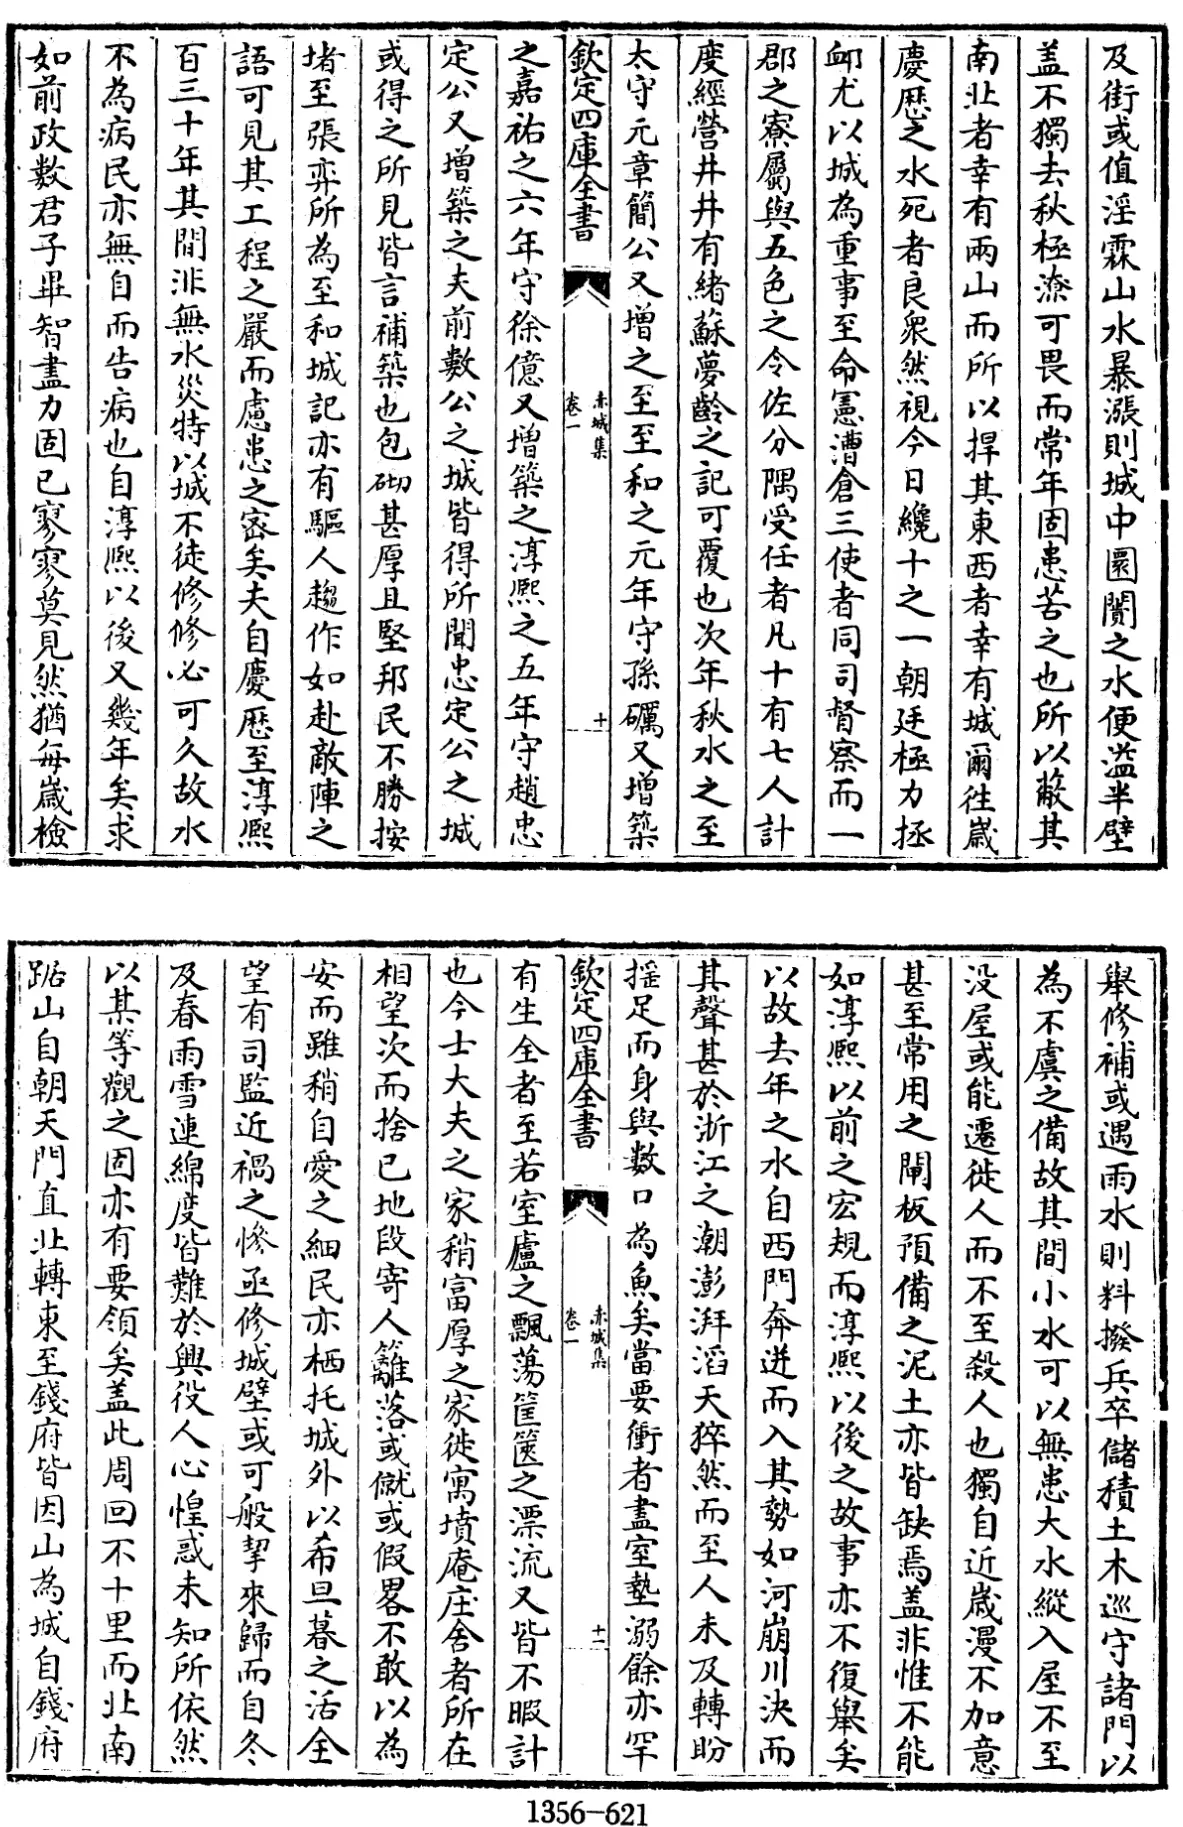 及街或值淫霖山水暴漲則城中圜闠之水便溢半壁
盖不獨去秋極潦可畏而常年固患苦之也所以敝其
南北者幸有兩山而所以捍其東西者幸有城爾徃歳
慶厯之水死者良衆然視今日纔十之一朝廷極力拯
䘏尤以城為重事至命憲漕倉三使者同司督察而一
郡之寮屬與五色之令佐分隅受任者凡十有七人計
度經營井井有緒蘇夢齡之記可覆也次年秋水之至
太守元章簡公又增之至至和之元年守孫礪又增築
欽定四庫全書
赤城集
卷一
十
之嘉祐之六年守徐億又增築之淳熙之五年守趙忠
定公又增築之夫前數公之城皆得所聞忠定公之城
或得之所見皆言補築也包砌甚厚且堅邦民不勝按
堵至張弈所為至和城記亦有驅人趨作如赴敵陣之
語可見其工程之嚴而慮患之宻矣夫自慶厯至淳熙
百三十年其間非無水災特以城不徒修修必可久故水
不為病民亦無自而告病也自淳熙以後又幾年矣求
如前政數君子畢智盡力固已寥寥莫見然猶每歳檢
舉修補或遇雨水則料撥兵卒儲積土木巡守諸門以
為不虞之備故其間小水可以無患大水縱入屋不至
没屋或能遷徙人而不至殺人也獨自近歳漫不加意
甚至常用之閘板預備之泥土亦皆缺焉盖非惟不能
如淳熙以前之宏規而淳熙以後之故事亦不復舉矣
以故去年之水自西門奔迸而入其勢如河崩川決而
其聲甚於浙江之潮澎湃滔天猝然而至人未及轉盼
揺足而身與數口為魚矣當要衝者盡室墊溺餘亦罕
欽定四庫全書
赤城集
卷一
十一
有生全者至若室廬之飄蕩筐篋之漂流又皆不暇計
也今士大夫之家稍富厚之家徙寓墳庵庄舍者所在
相望次而捨已地段寄人籬落或僦或假畧不敢以為
安而雖稍自愛之細民亦栖托城外以希旦暮之活全
望有司監近禍之慘亟修城壁或可般挈來歸而自冬
及春雨雪連綿度皆難於興役人心惶惑未知所依然
以某等觀之固亦有要領矣盖此周回不十里而北南
踞山自朝天門直北轉東至錢府皆因山為城自錢府
1356-621